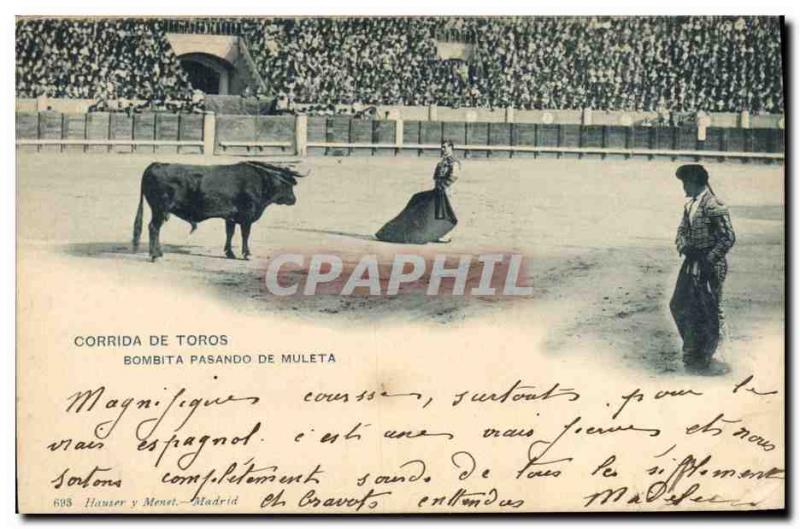 CPAPHIL
CORRIDA DE TOROS
BOMBITA PASANDO DE MULETA
Magnifiques courses, surtouts pour le
vrais espagnol. c'est une vrais fierve et nous
sortons complètement sourds de tous les sifflement
693 Hauser y Menet.-Madrid et bravots entendus Madeleine